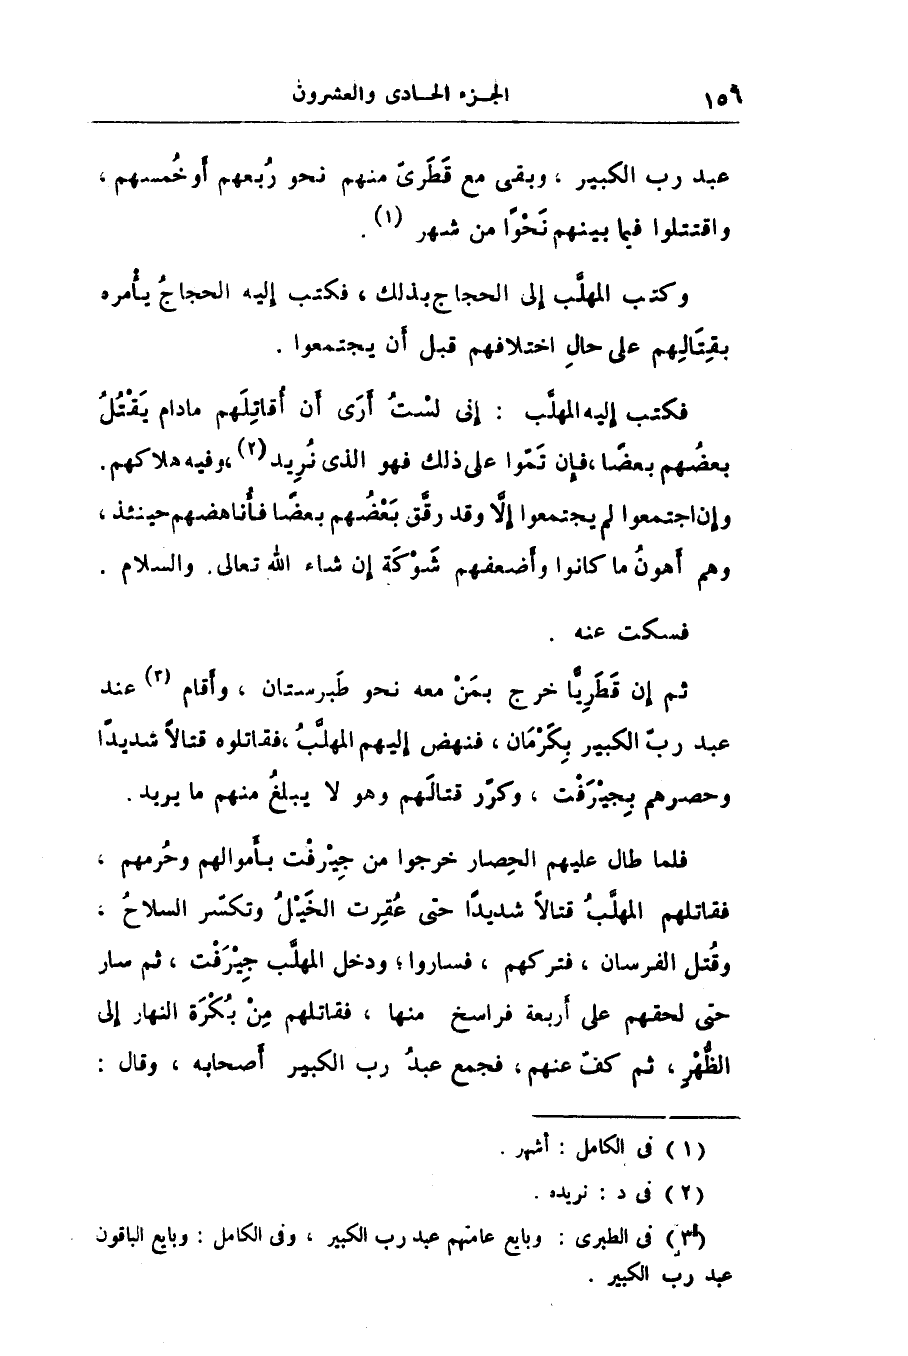 ١٥٦ الجزء الحادى والعشرون
عبد رب الكبير ، وبقى مع قَطَرىّ منهم نحو رُبعهم أو خُمسهم ،
واقتتلوا فيما بينهم نَحْوًا من شهر (١) .
وكتب المهلَّب إلى الحجاج بذلك ، فكتب إليه الحجاجُ يأْمره
بقِتَالِهم على حالِ اختلافهم قبل أن يجتمعوا .
فكتب إليه المهلَّب : إنى لسْتُ أَرَى أن أُقاتِلَهم مادام يَقْتُلُ
بعضُهم بعضًا ، فإن تَمّوا على ذلك فهو الذى نُرِيد (٢) ، وفيه هلاكهم .
وإن اجتمعوا لم يجتمعوا إلَّا وقد رقَّق بَعْضُهم بعضًا فأُناهضهم حينئذ ،
وهم أَهونُ ما كانوا وأَضعفهم شَوْكَة إن شاء الله تعالى . والسلام .
فسكت عنه .
ثم إن قَطَرِيًّا خرج بمَنْ معه نحو طَبرستان ، وأَقام (٣) عند
عبد ربّ الكبير بِكَرْمَان ، فنهض إليهم المهلَّبُ ، فقاتلوه قتالاً شديدًا
وحصرهم بِجيْرَفْت ، وكرّر قتالَهم وهو لا يبلغُ منهم ما يريد .
فلما طال عليهم الحِصار خرجوا من جِيْرفْت بأَموالهم وحُرمهم ،
فقاتلهم المهلَّبُ قتالاً شديدًا حتى عُقِرت الخَيْلُ وتكسّر السلاحُ ،
وقُتل الفرسان ، فتركهم ، فساروا ؛ ودخل المهلَّب جِيْرَفْت ، ثم سار
حتى لحقهم على أَربعة فراسخ منها ، فقاتلهم مِنْ بُكْرَة النهار إلى
الظُّهْرِ ، ثم كفّ عنهم ، فجمع عبدُ رب الكبير أَصحابه ، وقال :
(١) فى الكامل : أشهر .
(٢) فى د : نريده .
(٣) فى الطبرى : وبايع عامتهم عبد رب الكبير ، وفى الكامل : وبايع الباقون
عبد رب الكبير .